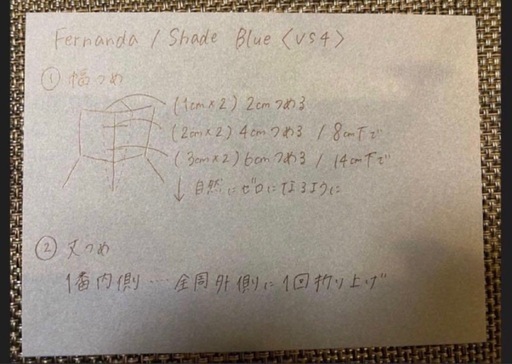 Fernanda / Shade Blue <VS4>
① 幅つめ
(1cm×2) 2cmつめる
(2cm×2) 4cmつめる / 8cm下で
(3cm×2) 6cmつめる / 14cm下で
↓ 自然にゼロになるように
② 丈つめ
1番内側…全周外側に1回折り上げ